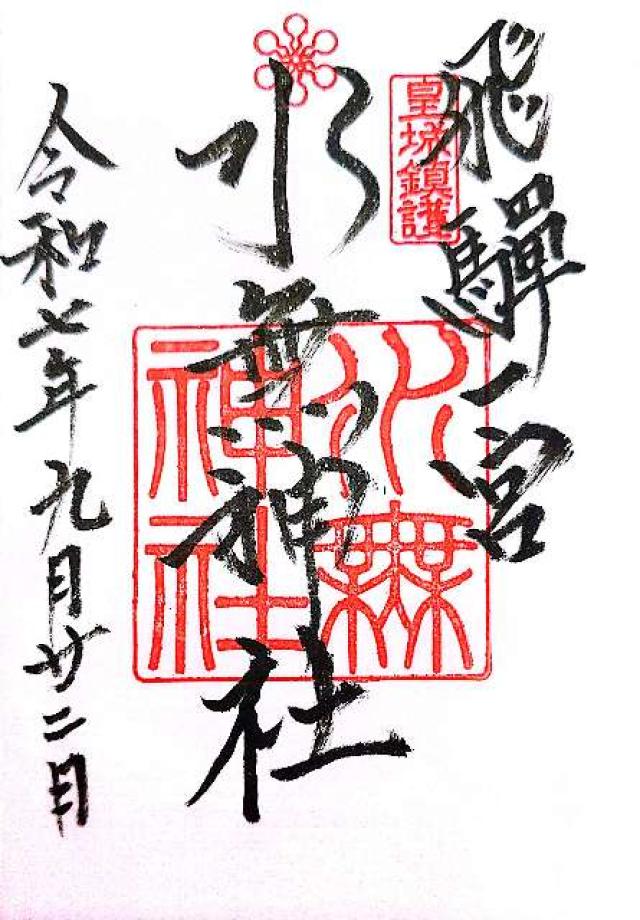 飛驒一宮
皇城鎮護
水無神社
水無神社
令和七年九月廿二日